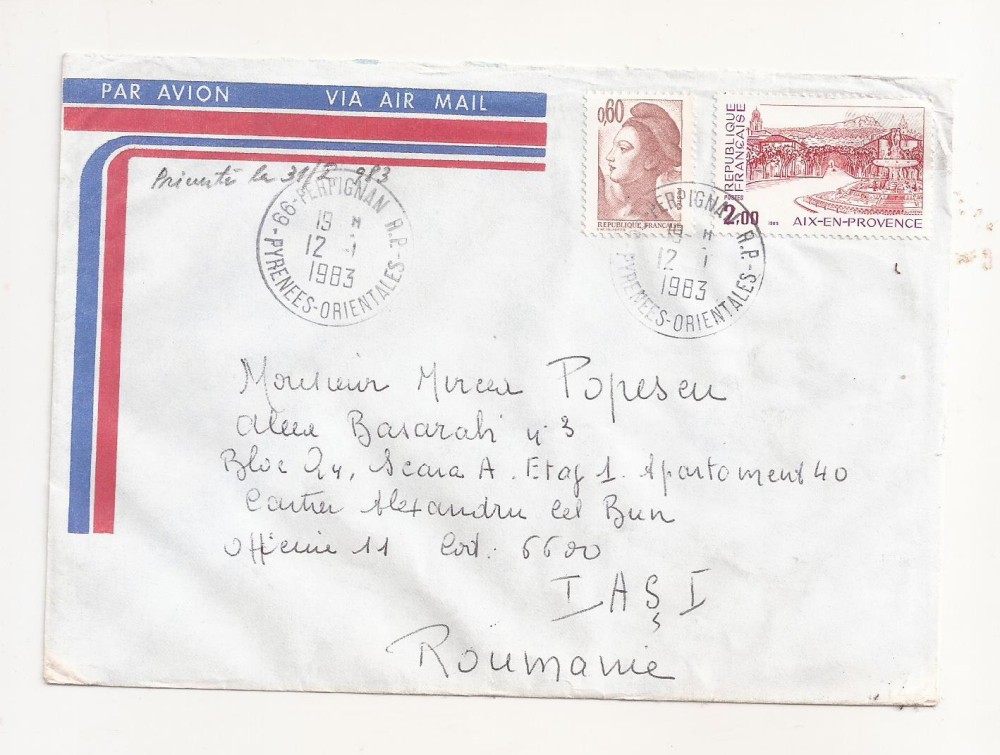 PAR AVION VIA AIR MAIL
0,60
REPUBLIQUE FRANÇAISE
REPUBLIQUE FRANÇAISE
POSTES
2,00
1983
AIX-EN-PROVENCE
le 31/ 983
66-PERPIGNAN R.P.
19 H
12 -1
1983
PYRENEES-ORIENTALES-
PERPIGNAN R.P.
19 H
12 -1
1983
PYRENEES-ORIENTALES-
Monsieur Mircea Popescu
aleea Basarabi n° 3
Bloc I4, Scara A. Etaj 1. Apartament 40
Cartier Alexandru cel Bun
Officiu 11 Cod. 6600
IAŞI
Roumanie